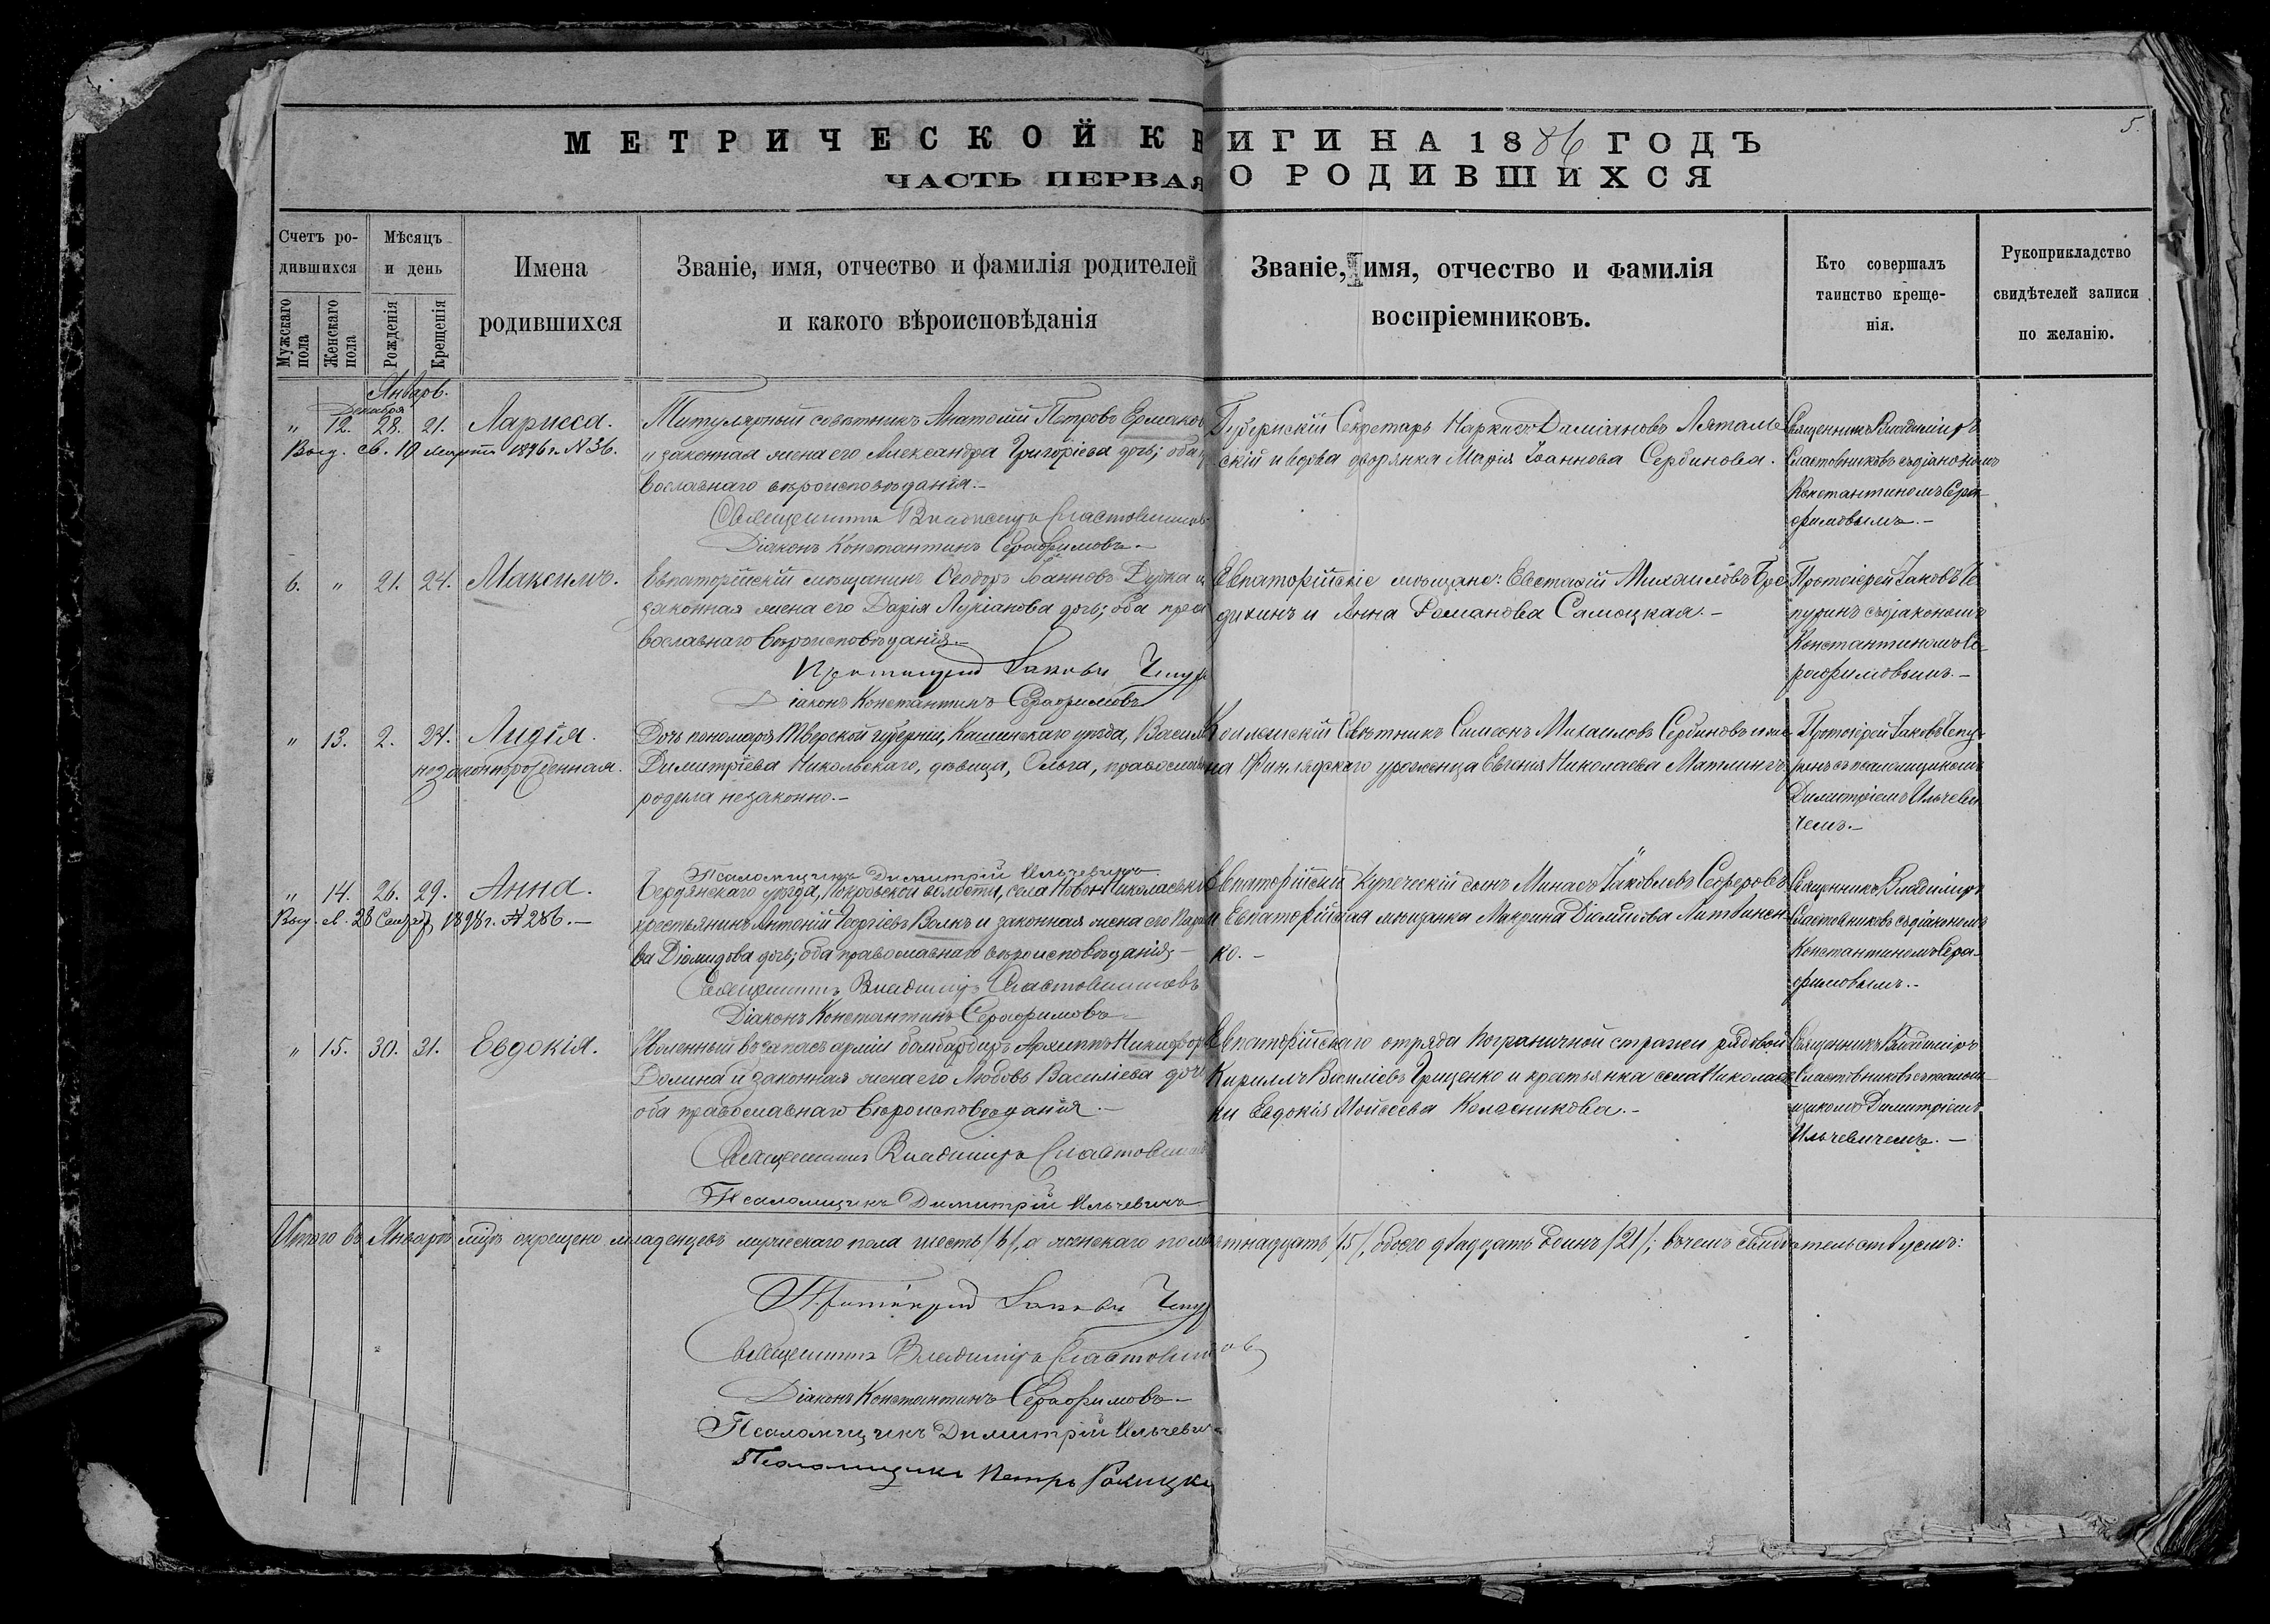 5.
МЕТРИЧЕСКОЙ К
ИГИ НА 1886 ГОДЪ
ЧАСТЬ ПЕРВАЯ
О РОДИВШИХСЯ
Счетъ ро-
дившихся
Мужскаго пола
Женскаго пола
Мѣсяцъ
и день
Рожденія
Крещенія
Имена
родившихся
Званіе, имя, отчество и фамилія родителей
и какого вѣроисповѣданія
Званіе, имя, отчество и фамилія
воспріемниковъ.
Кто совершалъ
таинство креще-
нія.
Рукоприкладство
свидѣтелей записи
по желанію.
Январь.
Декабря
" 12. 28. 21. Лариса.
Выд. св. 19 Марта 1896 г. N 36.
Титулярный советникъ Анатолій Петровъ Ермаковъ
и законная жена его Александра Григоріева дочь; оба
вославнаго вѣроисповѣданія.-
Священникъ Владиміръ Сластовниковъ
Діаконъ Константинъ Серафимовъ.-
Губернскій Секретарь Наркисъ Даміановъ
скій и вдова дворянка Марія Іоаннова Сербинова.
Священникъ Владиміръ
Сластовниковъ съ діакономъ
Константиномъ Сера-
фимовымъ.-
6. " 21. 24. Максимъ.
Евпаторійскій мѣщанинъ Ѳеодоръ Іоанновъ Дудка и
законная жена его Дарія Лукіанова дочь; оба пра
вославнаго вѣроисповѣданія.-
Протоіерей Іаковъ Чепур
Діаконъ Константинъ Серафимовъ
Евпаторійскіе мѣщане: Евстафій Михаиловъ
дихинъ и Анна Романова Самоцкая.-
Протоіерей Іаковъ Че
пуринъ съ діакономъ
Константиномъ Се-
рафимовымъ.-
" 13. 2. 24. Лидія.
незаконнорожденная.
Дочь пономаря Тверской губерніи, Кашинскаго уѣзда, Васил
Димитріева Никольскаго, дѣвица, Ольга, православн
родила незаконно.-
Псаломщикъ Димитрій Ильчевичъ
Коллежскій Совѣтникъ Симеонъ Михаиловъ Сербиновъ и же
на Финляндскаго уроженца Евгенія Николаева Мятлингъ
Протоіерей Іаковъ Чепу-
ринъ съ псаломщикомъ
Димитріемъ Ильчеви
чемъ.-
" 14. 26. 29. Анна.
Выд. св. 28 1898 г. N 286.-
Бердянскаго уѣзда, Покровской волости, села Ново-Николаевки
крестьянинъ Антоній Георгіевъ Волкъ и законная жена его
ва Діомидова дочь; оба православнаго вѣроисповѣданія.-
Священникъ Владиміръ Сластовниковъ
Діаконъ Константинъ Серафимовъ.-
Евпаторійскій купеческій сынъ Минасъ Іаковлевъ Сеферовъ
и Евпаторійская мѣщанка Макрина Діомидова Литвинен
ко.-
Священникъ Владиміръ
Сластовниковъ съ діакономъ
Константиномъ Сера-
фимовымъ.-
" 15. 30. 31. Евдокія.
Уволенный въ запасъ арміи бомбардиръ Архиппъ Никифоровъ
Долина и законная жена его Любовь Василіева дочь
оба православнаго вѣроисповѣданія.-
Священникъ Владиміръ Сластовниковъ
Псаломщикъ Димитрій Ильчевичъ
Евпаторійскаго отряда пограничной стражи рядовой
Кириллъ Василіевъ Гриценко и крестьянка села Николаев
ки Евдокія Мойсеева Колесникова.-
Священникъ Владиміръ
Сластовниковъ съ псалом-
щикомъ Димитріемъ
Ильчевичемъ.-
Итого въ Январѣ мцѣ окрещено младенцевъ мужескаго пола шесть /6/, а женскаго пола пятнадцать /15/, обоего двадцать одинъ /21/; въ чемъ свидѣтельствуемъ:
Протоіерей Іаковъ Чепур
Священникъ Владиміръ Сластовниковъ
Діаконъ Константинъ Серафимовъ.-
Псаломщикъ Димитрій Ильчевичъ
Псаломщикъ Петръ Ракицкі